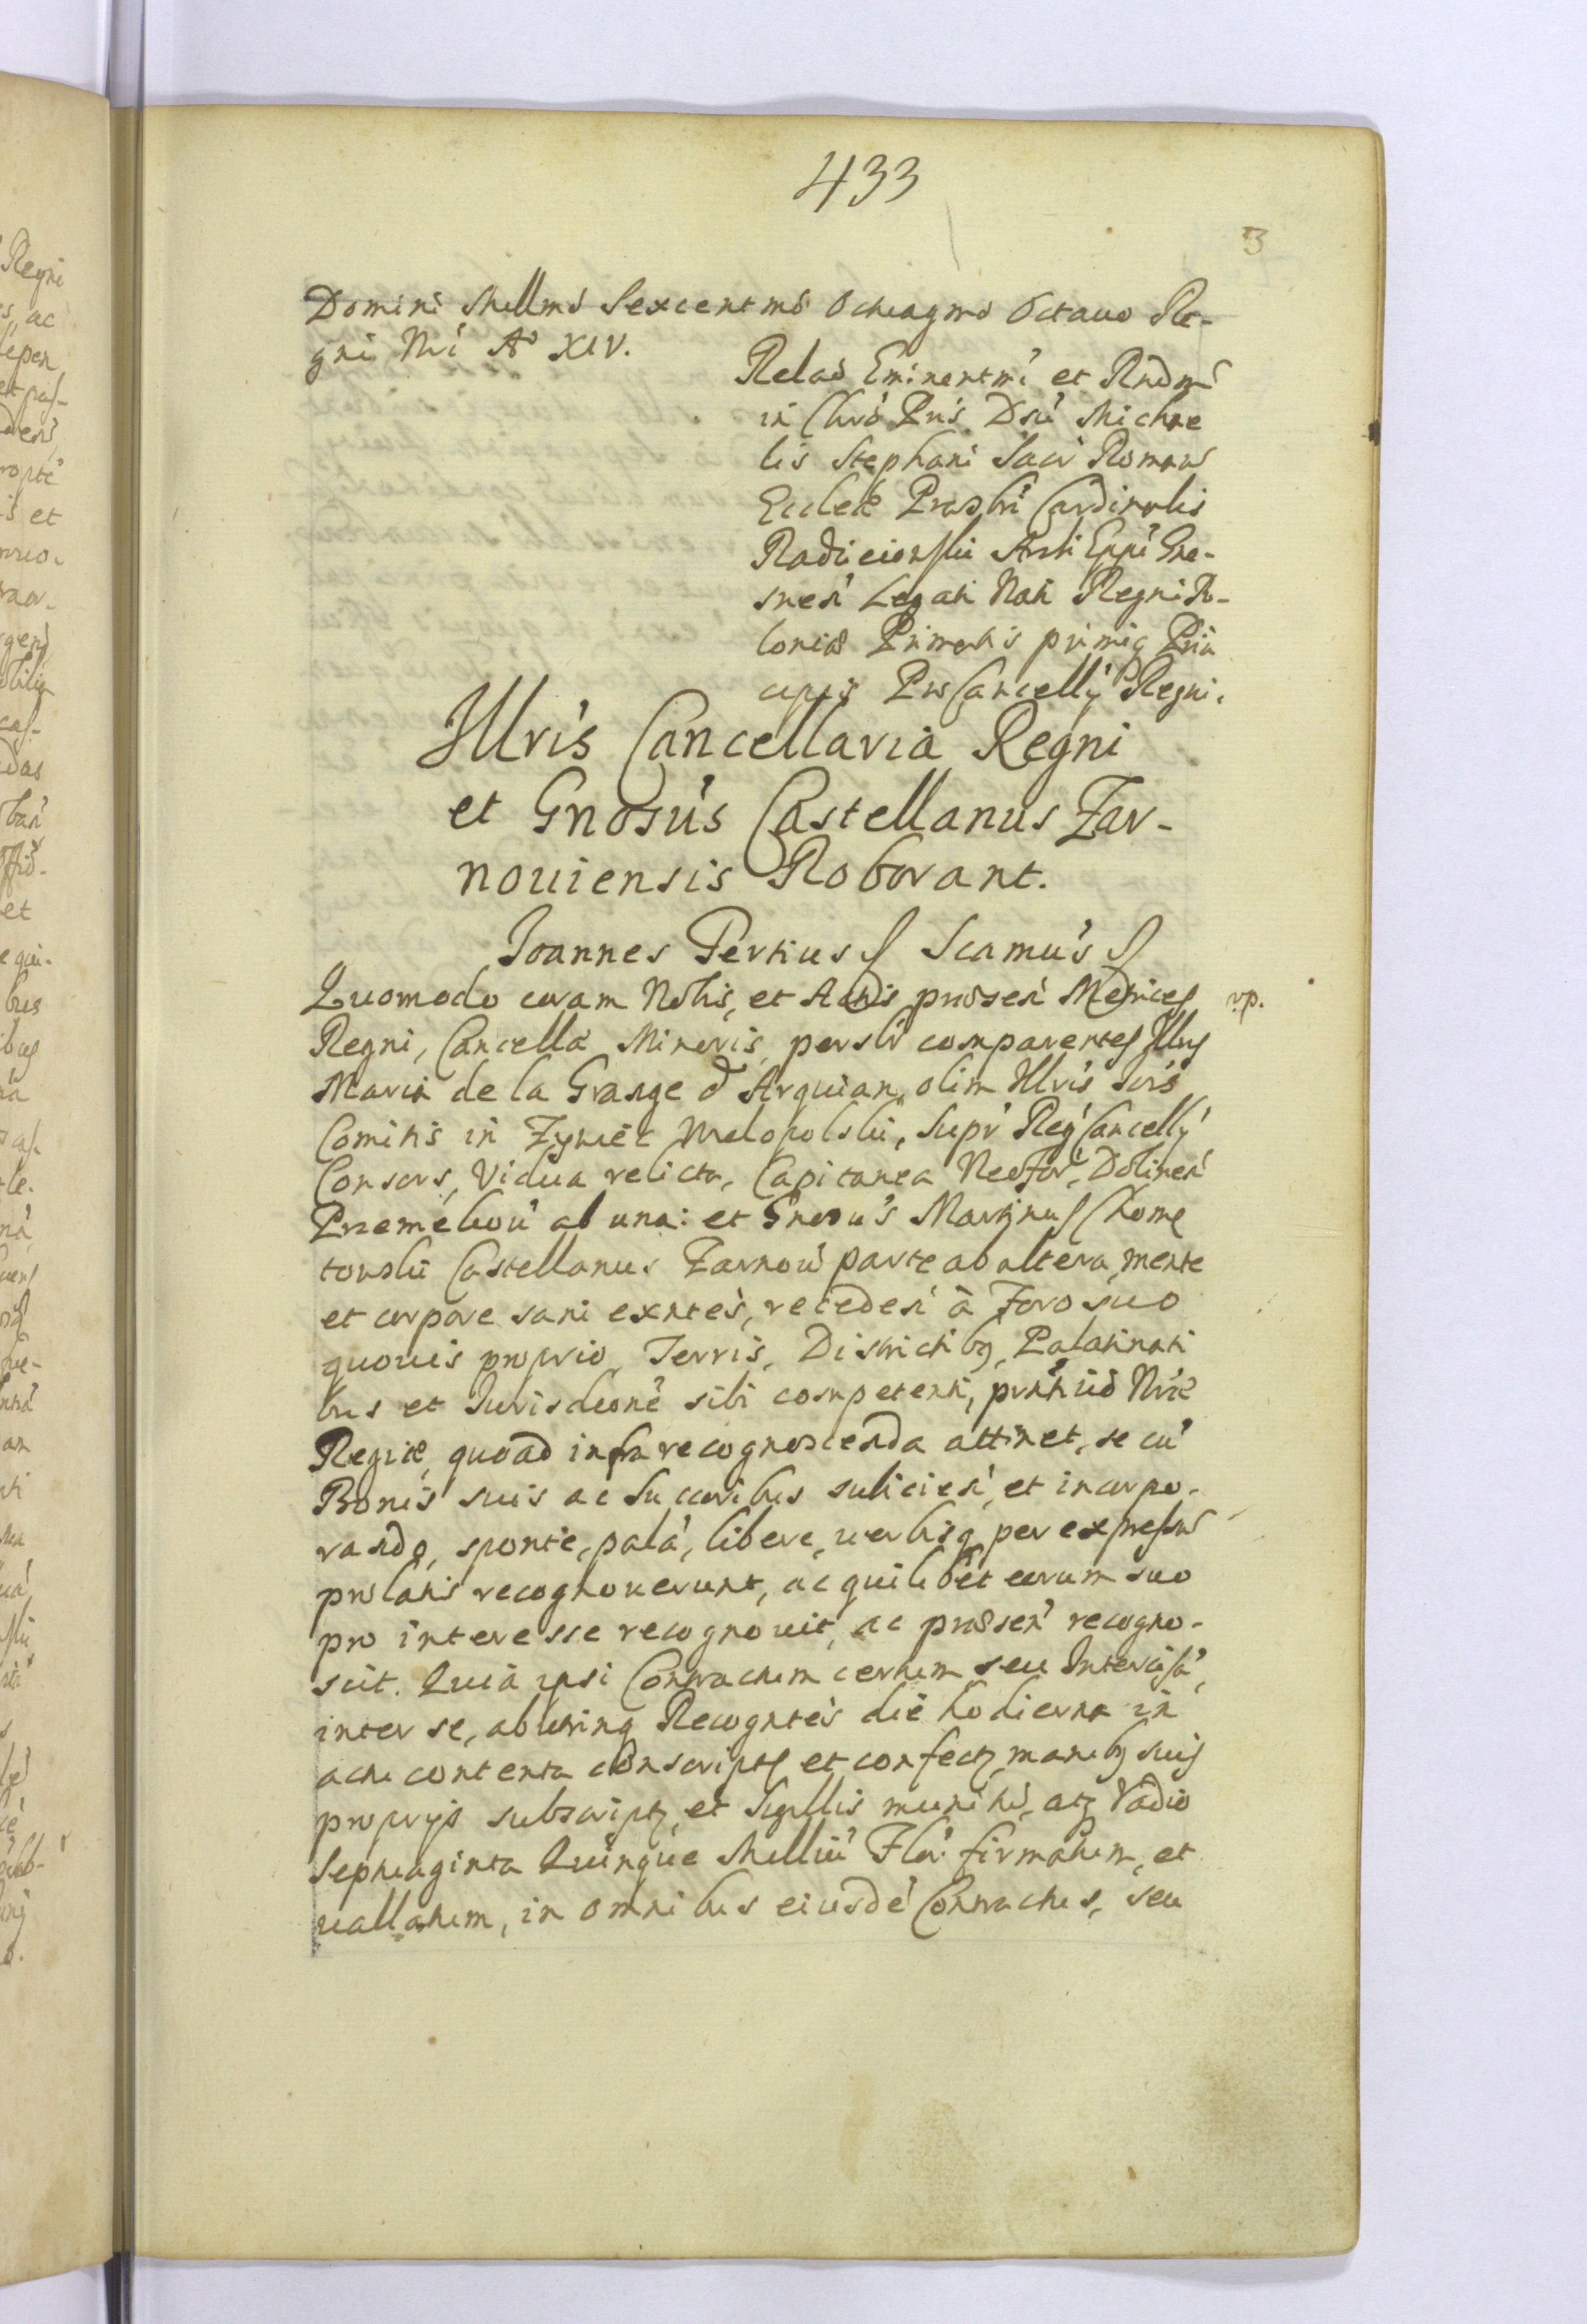 433
3
Domini Millmo Sexcentmo Octuagmo Octavo Re-
gni Nri Ao XIV.
Relao Eminentmi et Rndmi
in Chro Pris Dni Michae
lis Stephani Sacr Romanae
Eccleae Praesbri Cardinalis
Radzieiowski Archi Eppi Gne-
snen Legati Nati Regni Po-
loniae Primatis primiq Prin
cipis ProCancellý Regni.
Illris Cancellaria Regni
et Gnosus Castellanus Zar-
noviensis Roborant.
Joannes Tertius Scamus
Quomodo coram Nobis, et Actis praesen Metrices
Regni, Cancella Minoris, personalr comparentes Illus
vp.
Maria de la Grange d Arquian, olim Illris Joris
Comitis in Zywiec Wielopolski, Supr Reg Cancellý
Consors, Vidua relicta, Capitanea Neofor, Dolinen
ab una: et Gnosus Martinus Chome
towski Castellanus Zarnov parte ab altera, mente
et corpore sani exntes, receden à Foro suo
quovis proprio, Terris, Districtibq, Palatinati
bus et Jurisdcone sibi competenti, pntiq Nrae
Regiae, quoad infra recognoscenda attinet, se cu
Bonis suis ac Succoribus subiicien, et incorpo-
rando, sponte, pala, libere, verbisq per expressum
prolatis recognoverunt, ac quilibet eorum suo
pro interesse recognovit, ac praesen recogno-
scit. Quia ipsi Contractum certum seu Intercisa,
inter se, ab utrinq Recogntes die hodierna in
actu contenta conscript et confect, manibq suis
proprijs subscript, et Sigillis munitu, atq Vadio
Septuaginta Quinque Milliu Flor firmatum, et
vallatum, in omnibus eiusde Contractus, seu